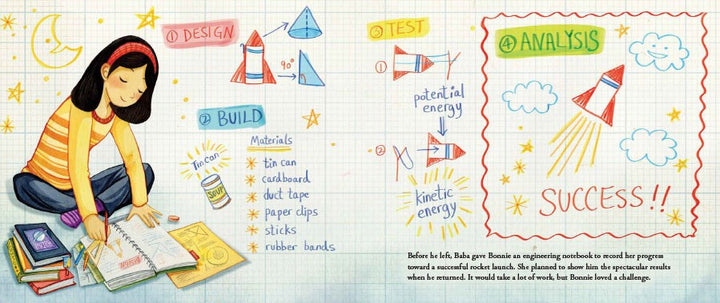 ① DESIGN
90°
② BUILD
Tin can
SOUP
Materials
tin can
cardboard
duct tape
paper clips
sticks
rubber bands
③ TEST
①
potential
energy
②
kinetic
energy
④ ANALYSIS
SUCCESS!!
Before he left, Baba gave Bonnie an engineering notebook to record her progress
toward a successful rocket launch. She planned to show him the spectacular results
when he returned. It would take a lot of work, but Bonnie loved a challenge.